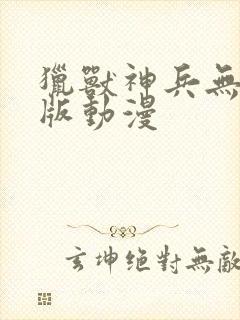 獵獸神兵無
版動漫
玄坤絕對無敵